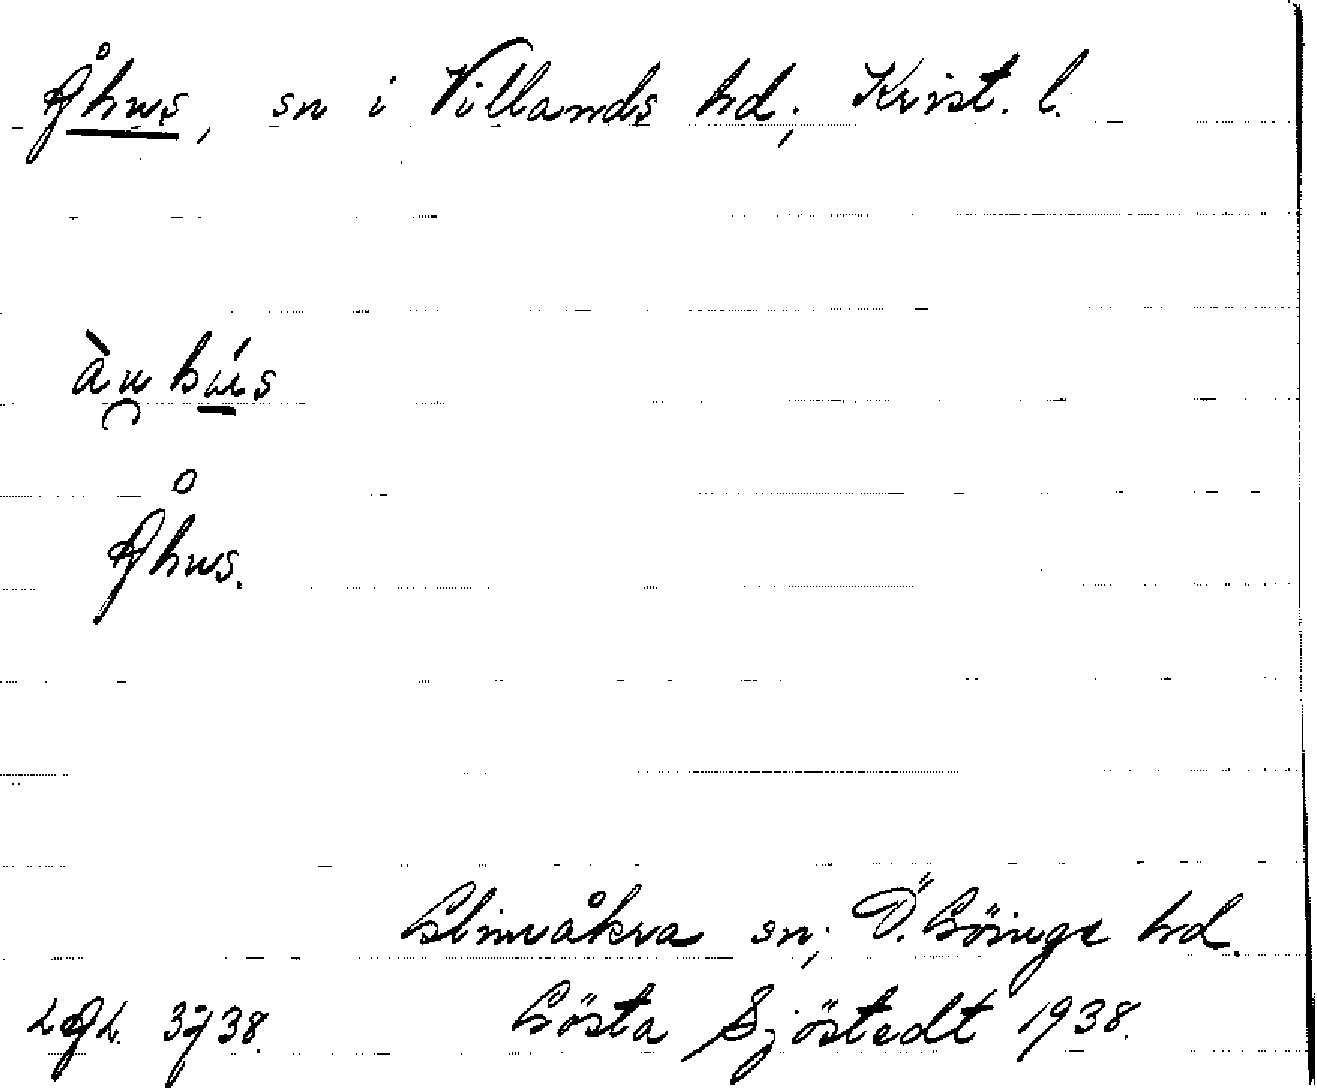 Åhus, sn i Villands hd; Krist. l.
àu̯hú̲s
Åhus.
Glimåkra sn; Ö. Göinge hd.
Gösta Sjöstedt 1938.